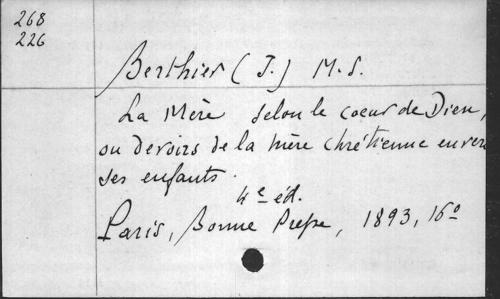 268
226
Berthier (J.) M.S.
La Mère selon le coeur de Dieu,
ou devoirs de la mère chrétienne envers
ses enfants.
4e éd.
Paris, Bonne Presse, 1893, 16°